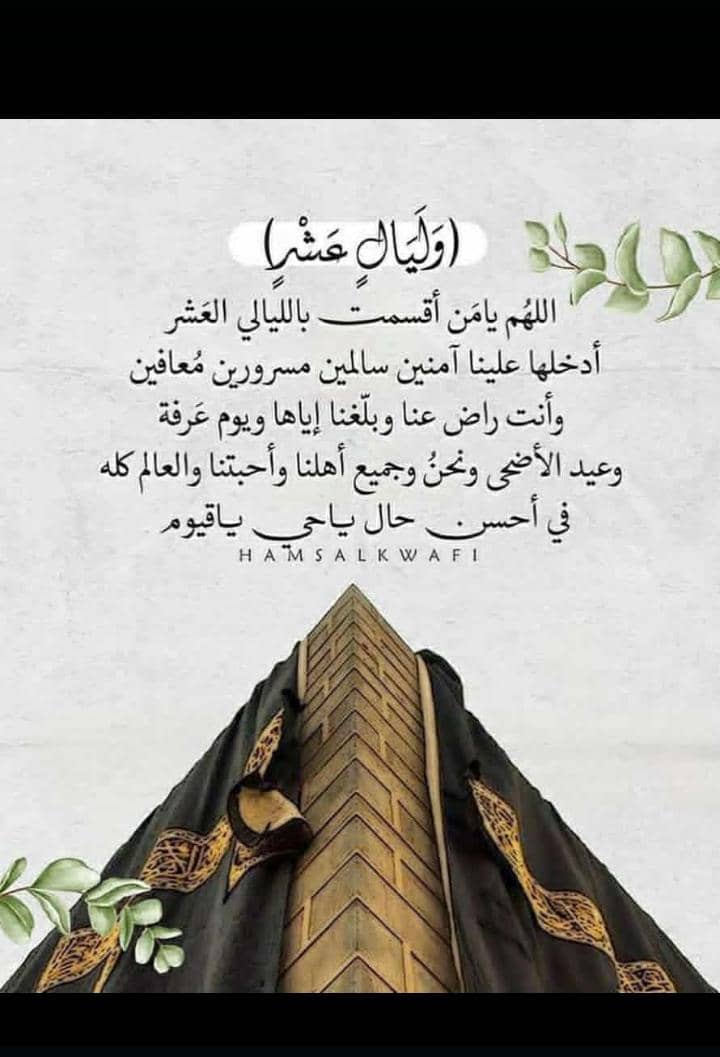 (وَلَيَالٍ عَشْرٍ)
اللهُم يامَن أقسمت بالليالي العَشر
أدخلها علينا آمنين سالمين مسرورين مُعافين
وأنت راض عنا وبلّغنا إياها ويوم عَرفة
وعيد الأضحى ونحنُ وجميع أهلنا وأحبتنا والعالم كله
في أحسن حال ياحي ياقيوم
HAMSALKWAFI